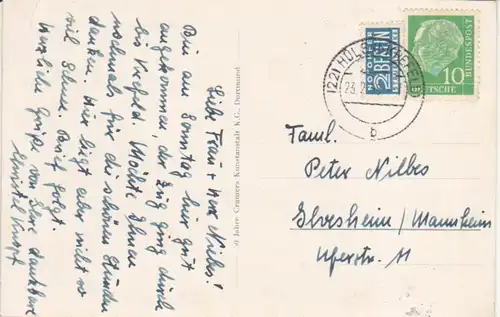 Liebe Frau + Herr Nilbes!
Bin am Sonntag hier gut
angekommen, der Zug ging durch
bis Krefeld. Möchte Ihnen
nochmals für die schönen Stunden
danken. Hier liegt aber nicht so
viel Schnee. Brief folgt.
Herzliche Grüße von Ihrer dankbaren
Christel
50 Jahre Cramers Kunstanstalt K.G., Dortmund
NOTOPFER
2 BERLIN
STEUERMARKE
DEUTSCHE
BUNDESPOST
10
(22)
23.2
b
Faml.
Peter Nilbes
Ilvesheim/Mannheim
Uferstr. 11